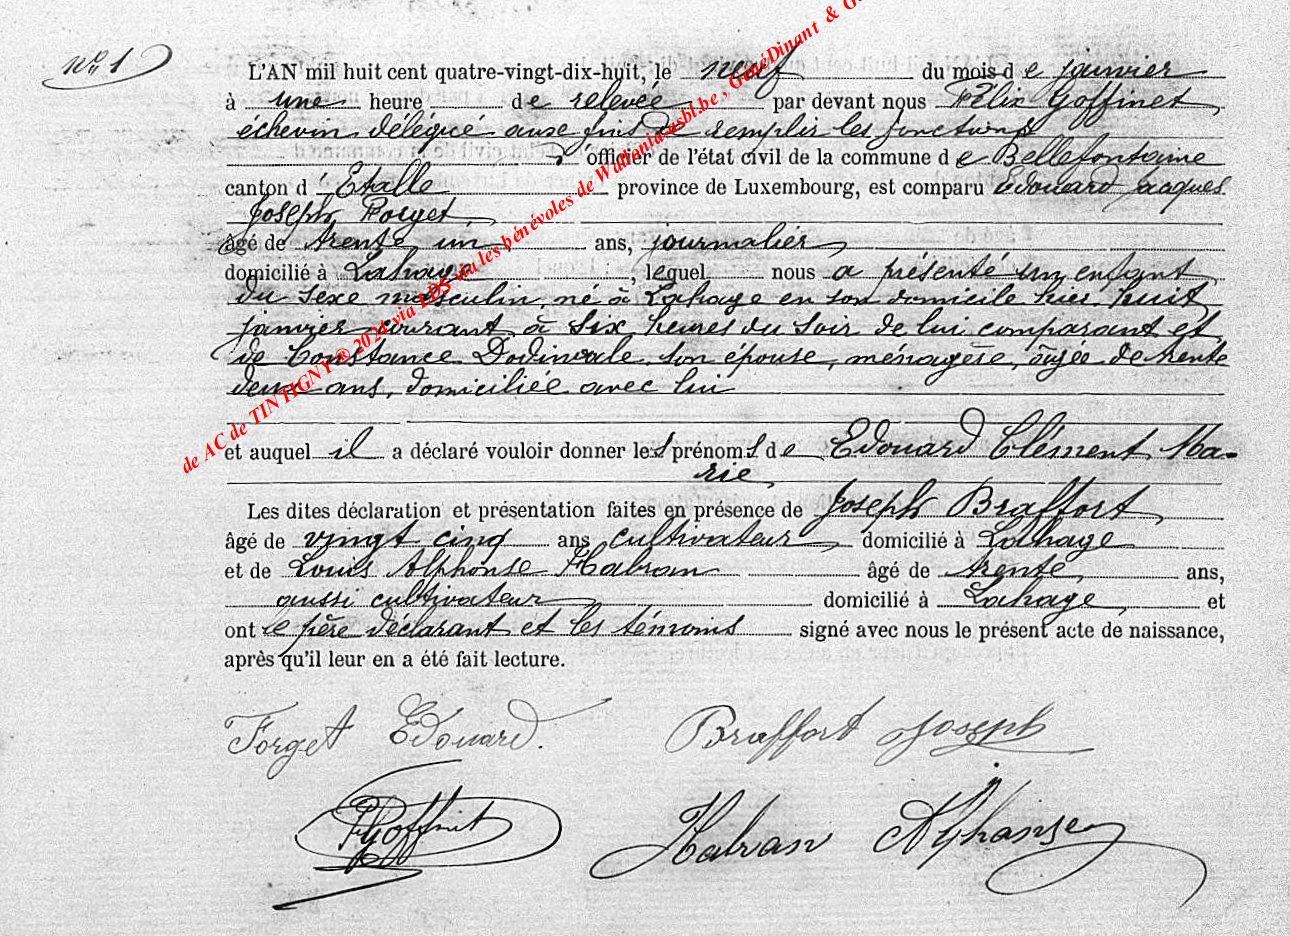 N° 1
L'AN mil huit cent quatre-vingt-dix-huit, le neuf du mois de janvier
à une heure de relevée par devant nous Félix Goffinet,
échevin délégué aux fins de remplir les fonctions
, officier de l'état civil de la commune de Bellefontaine
canton d'Etalle province de Luxembourg, est comparu Edouard Jacques
Joseph Forget,
âgé de trente un ans, journalier,
domicilié à Lahage, lequel nous a présenté un enfant
du sexe masculin, né à Lahage en son domicile hier huit
janvier courant à six heures du soir de lui comparant et
de Constance Dodinvale son épouse, ménagère, âgée de trente
deux ans, domiciliée avec lui
et auquel il a déclaré vouloir donner les prénoms de Edouard Clément Ma-
rie,
Les dites déclaration et présentation faites en présence de Joseph Braffort,
âgé de vingt cinq ans cultivateur, domicilié à Lahage
et de Louis Alphonse Habran âgé de trente ans,
aussi cultivateur domicilié à Lahage, et
ont le père déclarant et les témoins signé avec nous le présent acte de naissance,
après qu'il leur en a été fait lecture.
Forget Edouard. Braffort Joseph
F Goffinet Habran Alphonse
de AC de TINTIGNY ® 2024 via LDS via les bénévoles de Wallonia-asbl.be , GénéDinant & G